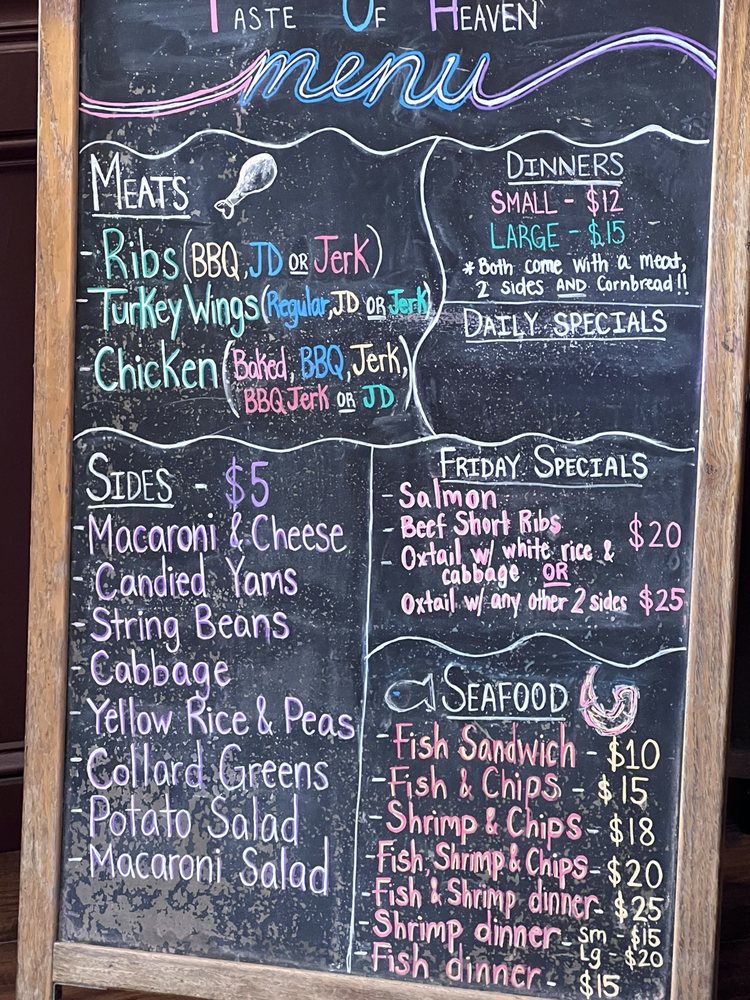 TASTE OF HEAVEN
menu
MEATS
- Ribs (BBQ, JD OR Jerk)
- Turkey Wings (Regular, JD OR Jerk)
- Chicken (Baked, BBQ, Jerk,
BBQ Jerk OR JD)
DINNERS
SMALL - $12
LARGE - $15
* Both come with a meat,
2 sides AND Cornbread!!
DAILY SPECIALS
SIDES - $5
- Macaroni & Cheese
- Candied Yams
- String Beans
- Cabbage
- Yellow Rice & Peas
- Collard Greens
- Potato Salad
- Macaroni Salad
FRIDAY SPECIALS
- Salmon
- Beef Short Ribs $20
- Oxtail w/ white rice &
cabbage OR
Oxtail w/ any other 2 sides $25
SEAFOOD
- Fish Sandwich - $10
- Fish & Chips - $15
- Shrimp & Chips - $18
- Fish, Shrimp & Chips - $20
- Fish & Shrimp dinner - $25
- Shrimp dinner - Sm - $15
Lg - $20
- Fish dinner - $15